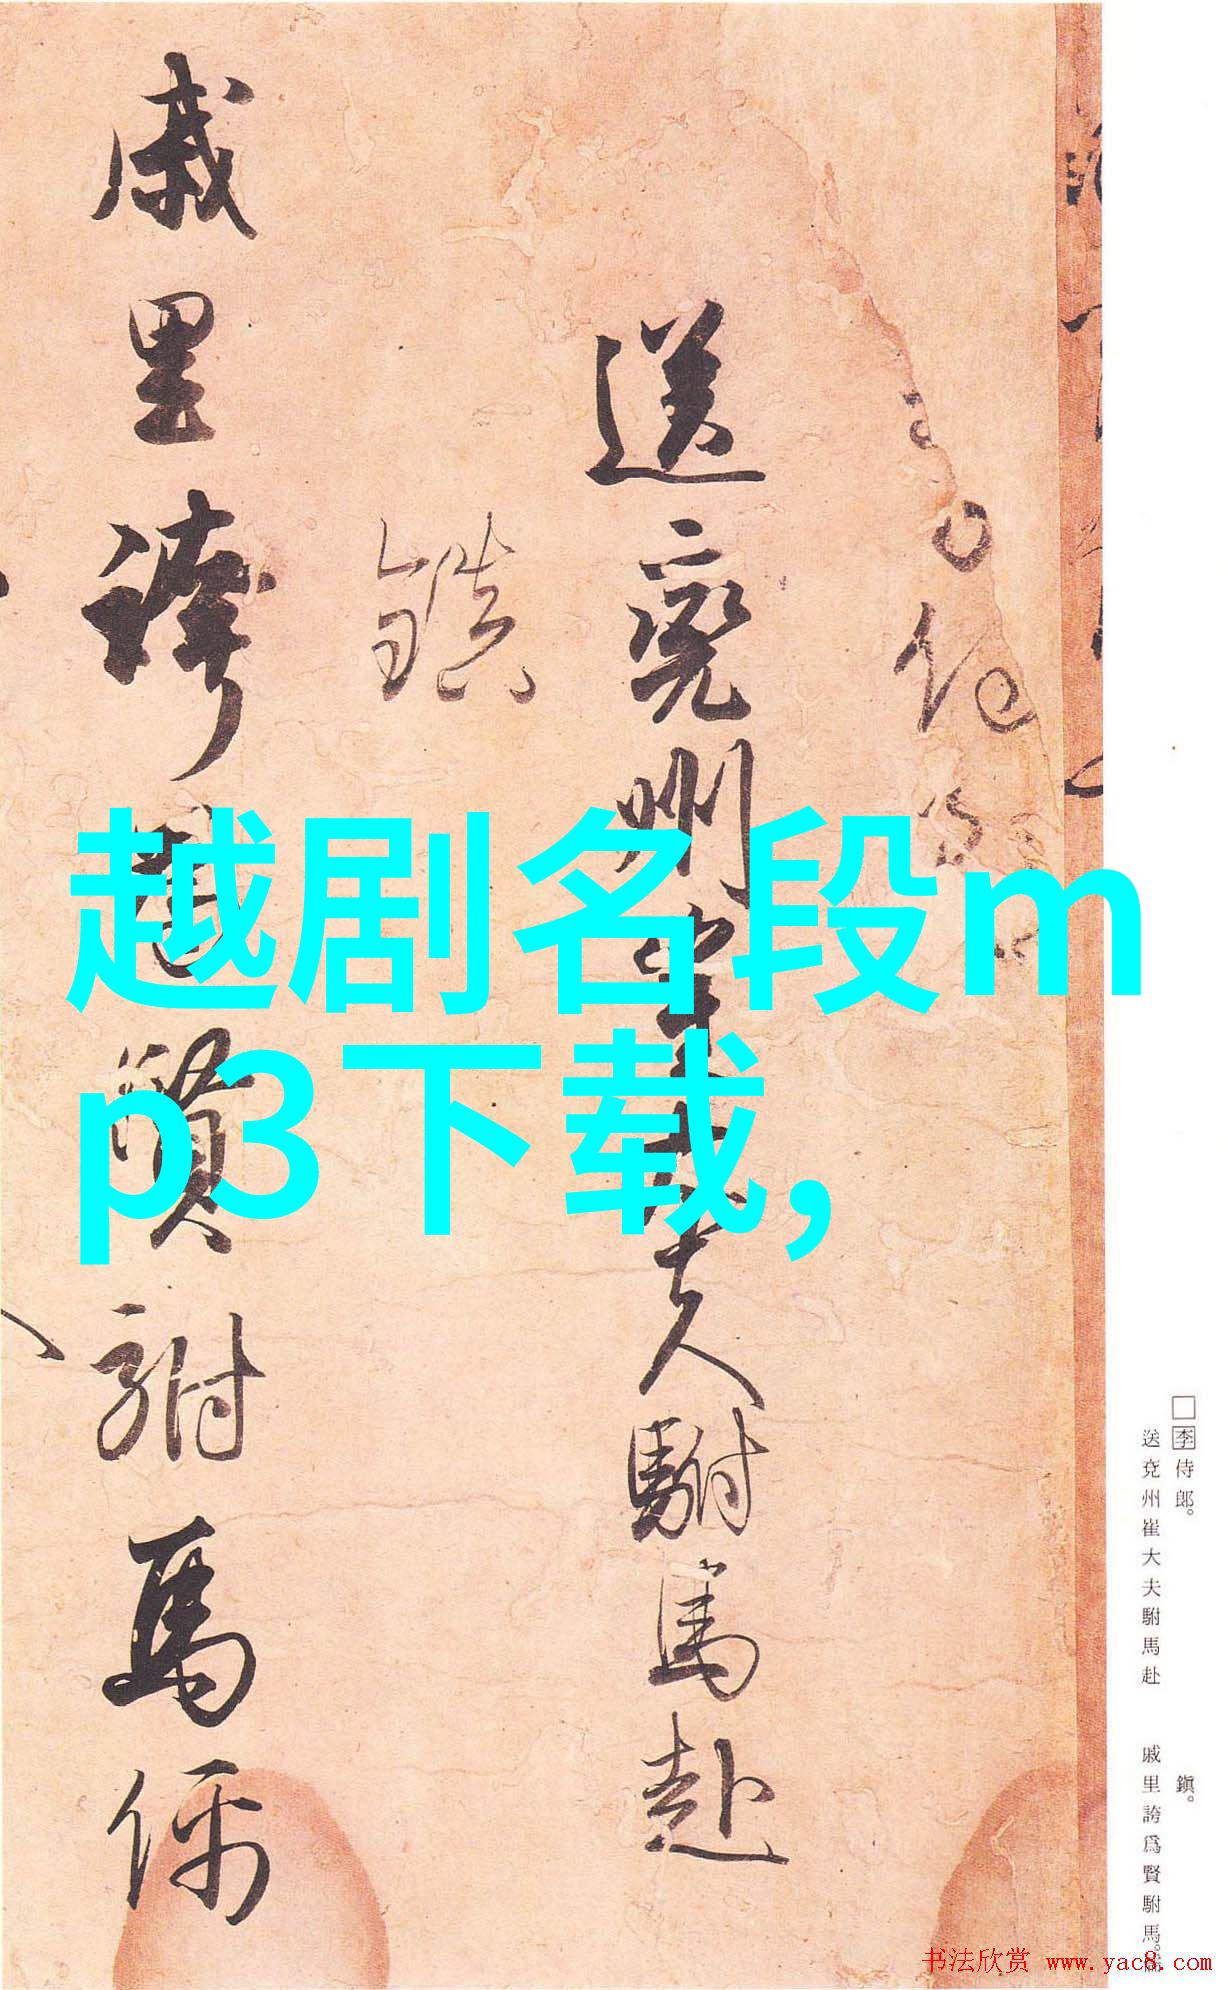 李侍郎。
送兗州崔大夫駙馬赴
鎮。
戚里誇爲賢駙馬。儒
送兗州崔大夫駙馬赴
鎮
戚里誇爲賢駙馬儒
越剧名段m
p3下载,
书法欣赏 www.yac8.com